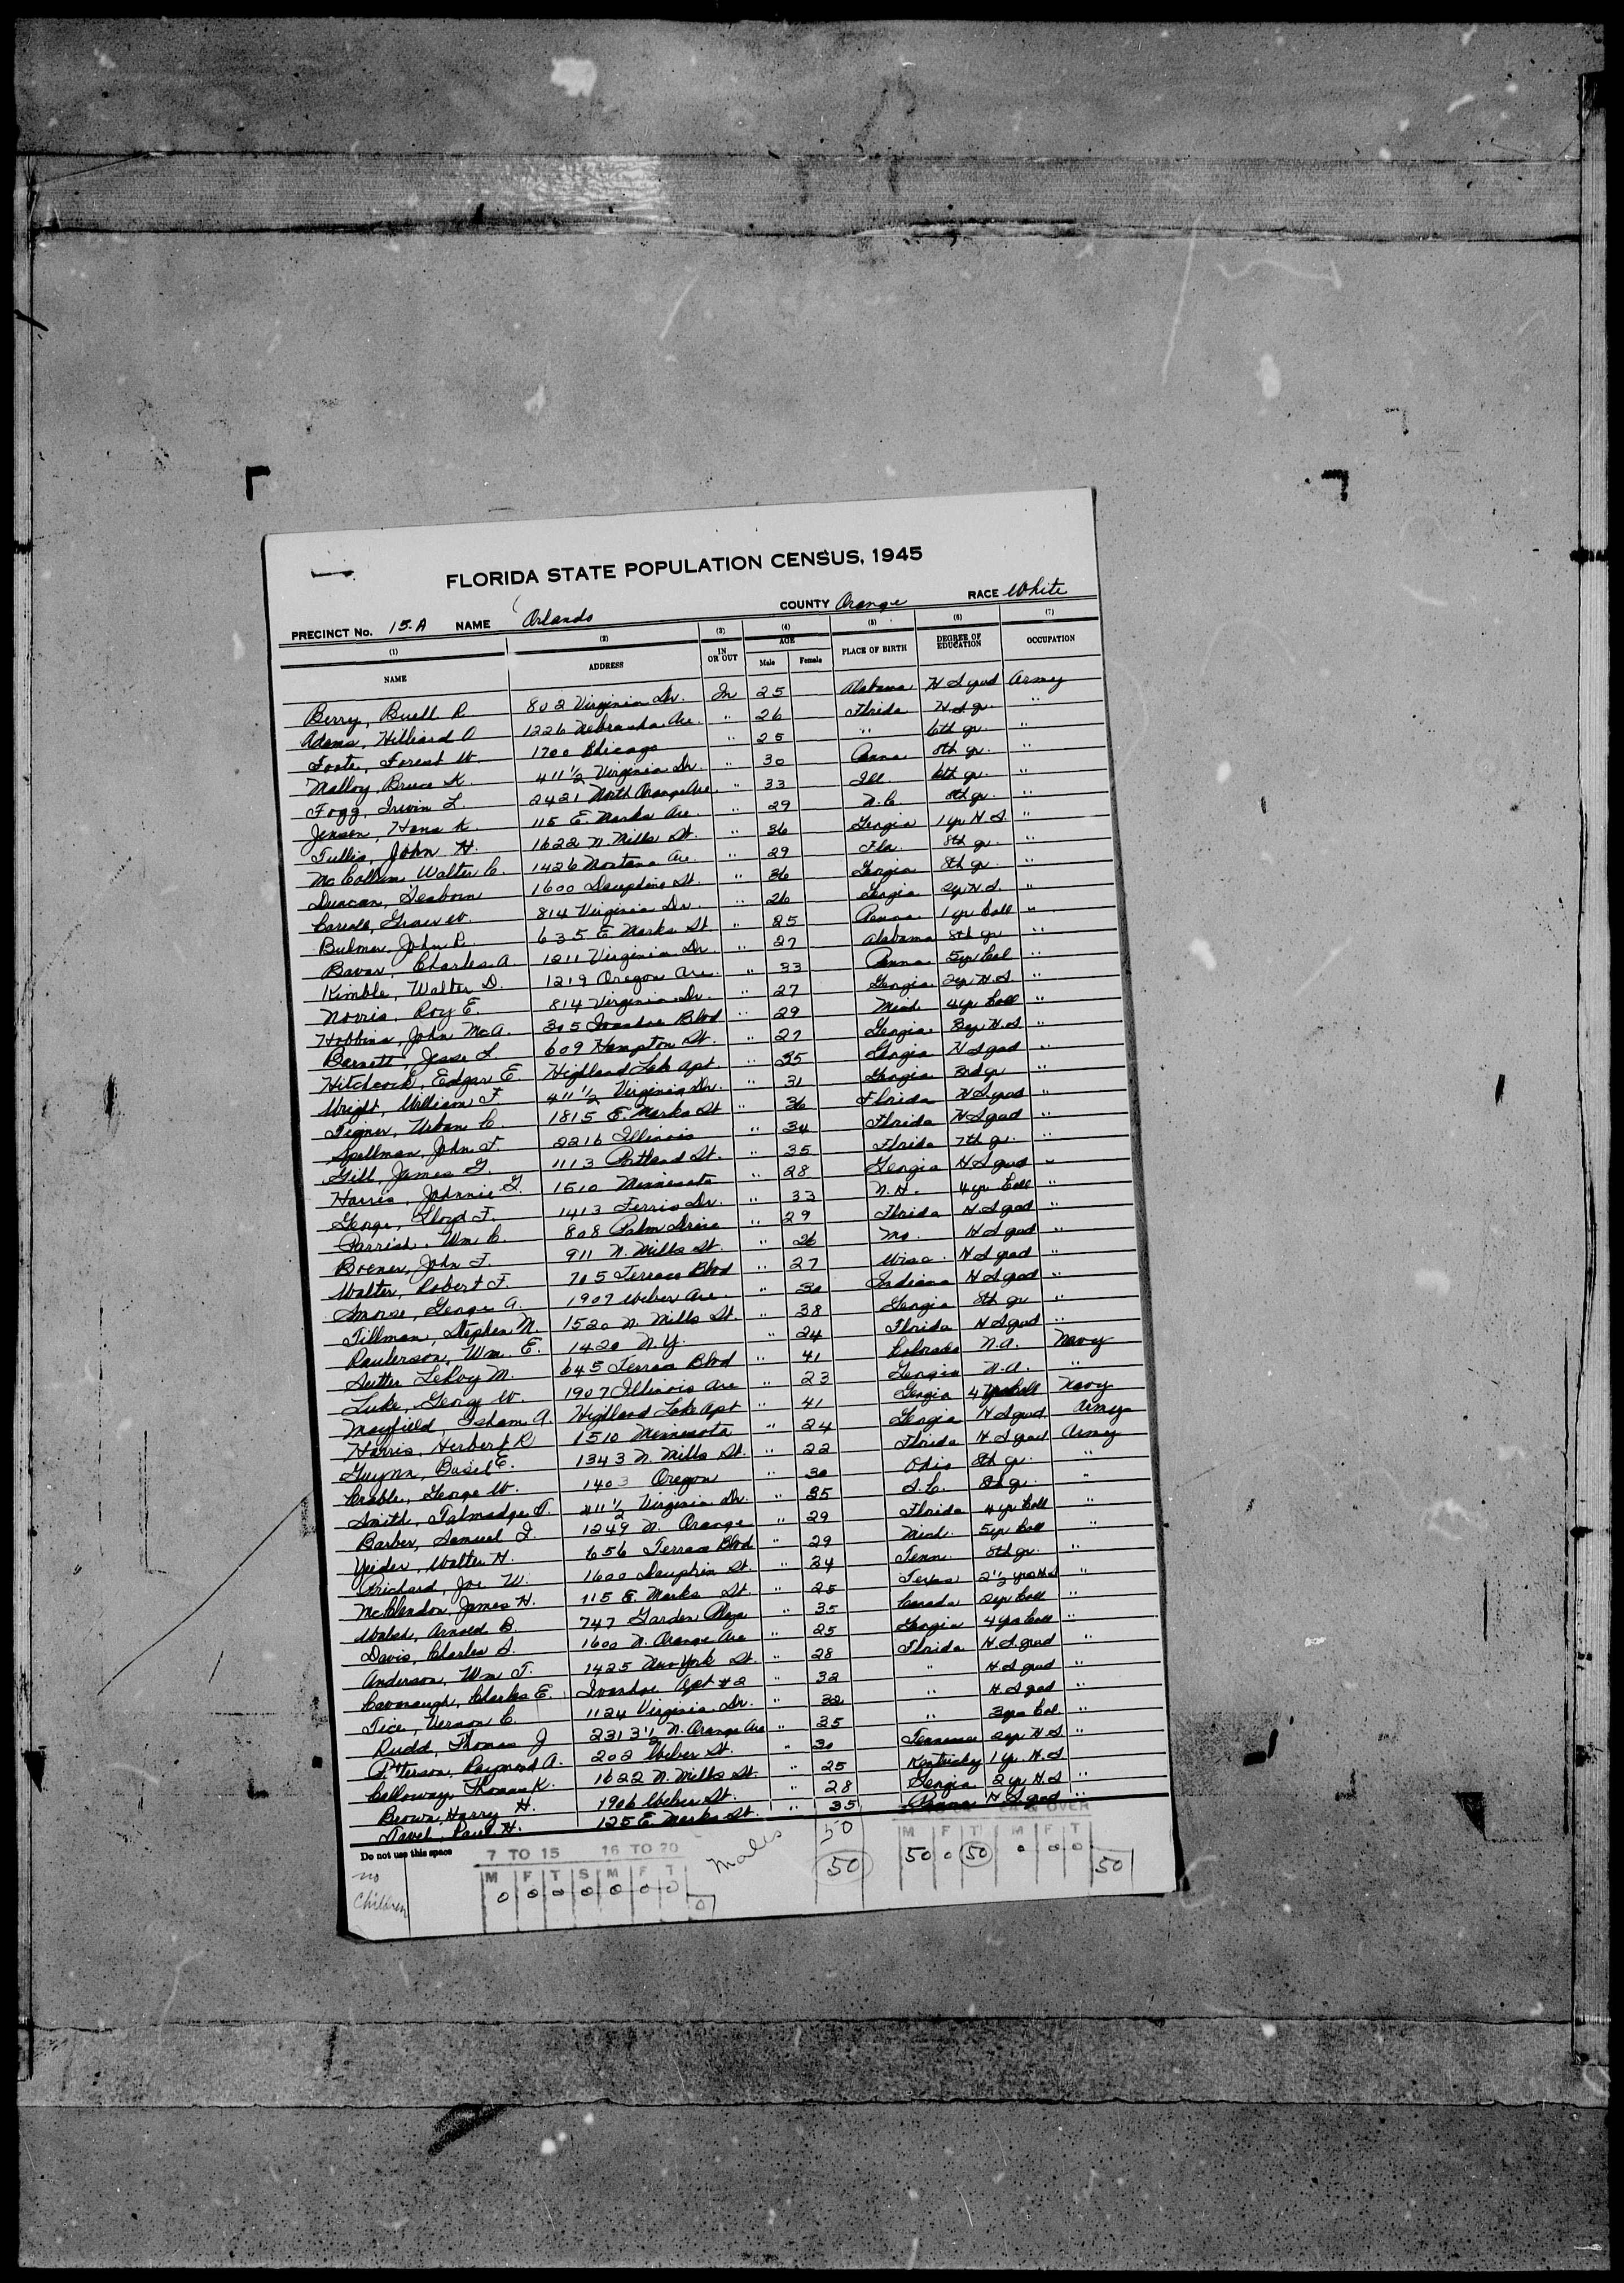 FLORIDA STATE POPULATION CENSUS, 1945
PRECINCT No. 15-A NAME Orlando COUNTY Orange RACE White
(1) (2) (3) (4) (5) (6) (7)
NAME ADDRESS IN OR OUT AGE Male Female PLACE OF BIRTH DEGREE OF EDUCATION OCCUPATION
Berry, Buell R. 802 Virginia Dr. In 25 Alabama H S grad Army
Adams, Hilliard O 1226 Nebraska Ave " 26 Florida H S gr. "
Foote, Forest W. 1700 Chicago " 25 " 6th gr. "
Malloy, Bruce K. 411 1/2 Virginia Dr. " 30 Penna. 8th gr. "
Fogg, Irwin L. 2421 North Orange Ave. " 33 Ill. 6th gr. "
Jensen, Hans K. 115 E. Marks Ave. " 29 N.C. 8th gr. "
Tullis, John H. 1622 N Mills St. " 36 Georgia 1 yr H S "
McCollum, Walter C. 1426 Montana Ave " 29 Fla. 8th gr. "
Duncan, Seaborn 1600 Dauphine St. " 36 Georgia 8th gr. "
814 Virginia Dr. " 26 Georgia 2 yr H.S. "
Bulmer, John R. 635 E Marks St " 25 Penna. 1 yr Coll "
Bavar, Charles A. 1211 Virginia Dr. " 27 Alabama 8th gr "
Kimble, Walter D. 1219 Oregon Ave. " 33 Penna 5 yr Col "
Norris, Roy E. 814 Virginia Dr. " 27 Georgia 2 yr H.S. "
Hobbins, John McA. 305 Ivanhoe Blvd " 29 Mich. 4 yr Coll "
Barnett, Jesse L 609 Hampton St. " 27 Georgia 3 yr H.S "
Hitchcock, Edgar E. Highland Lake Apt. " 35 Georgia H S grad "
Wright, William F. 411 1/2 Virginia Dr. " 31 Georgia 3rd gr "
Tigner, Urban C. 1815 E. Marks St " 36 Florida H S. grad "
Spellman, John F. 2216 Illinois " 34 Florida H S grad "
Gill, James G. 1113 Portland St. " 35 Florida 7th gr. "
Harris, Johnnie G. 1510 Minnesota " 28 Georgia H S grad "
George, Lloyd F. 1413 Ferris Dr. " 33 N.H. 4 yr Coll "
Parrish, Wm C. 808 Palm Drive " 29 Florida H S grad "
Boener, John F. 911 N. Mills St. " 26 Mo. H S grad "
Walter, Robert F. 705 Terrace Blvd " 27 Wisc. H S grad "
George A. 1907 Weber Ave. " 30 Indiana H S grad "
Tillman, Stephen N. 1520 N. Mills St. " 38 Georgia 8th gr "
Raulerson, Wm. E. 1420 N.Y. " 24 Florida H S grad "
Sutter LeRoy M. 645 Terrace Blvd " 41 Colorado N.A. Navy
Luke, George W. 1907 Illinois Ave " 23 Georgia N.A. "
Mayfield, Isham A. Highland Lake Apt " 41 Georgia 4 yrs Coll Navy
Harris, Herbert R 1510 Minnesota " 24 Georgia H S grad Army
Guynn, Basil E. 1343 N. Mills St. " 22 Florida H S grad Army
Crable, George W. 1403 Oregon " 30 Ohio 8th gr. "
Smith, Talmadge T. 411 1/2 Virginia Dr. " 35 S.C. 8th gr. "
Barber, Samuel J. 1249 N. Orange " 29 Florida 4 yr Coll "
Yeider, Walter H. 656 Terrace Blvd " 29 Mich. 5 yr Coll "
Prichard, Joe W. 1600 Dauphin St. " 34 Tenn. 8th gr. "
McClendon, James H. 115 E. Marks St. " 25 Texas 2 1/2 yrs H S "
Walsh, Arnold B. 747 Garden Plaza " 35 Canada 2 yr Coll "
Davis, Charles S. 1600 N. Orange Ave " 25 Georgia 4 yrs Coll "
Anderson, Wm T. 1425 New York St. " 28 Florida H. S. grad "
Cavanaugh, Charles E. Ivanhoe Apt #2 " 32 " H S grad "
Tice, Vernon C. 1124 Virginia Dr. " 32 " H S grad "
Rudd, Thomas J 2313 1/2 N. Orange Ave " 35 " 3 yrs Col. "
Peterson, Raymond A. 202 Weber St. " 30 Tennessee 2 yr H S. "
Calloway, Thomas K. 1622 N. Mills St. " 25 Kentucky 1 yr. H.S "
Brown, Harry H. 1906 Weber St. " 28 Georgia 2 yr H.S "
Paul H. 125 E Marks St. " 35 Penna H S grad "
Do not use this space
no Children
7 TO 15 16 TO 20 Males 50 OVER
M F T S M F T 50 M F T M F T
0 0 0 0 0 0 0 0 50 0 50 0 0 0 50